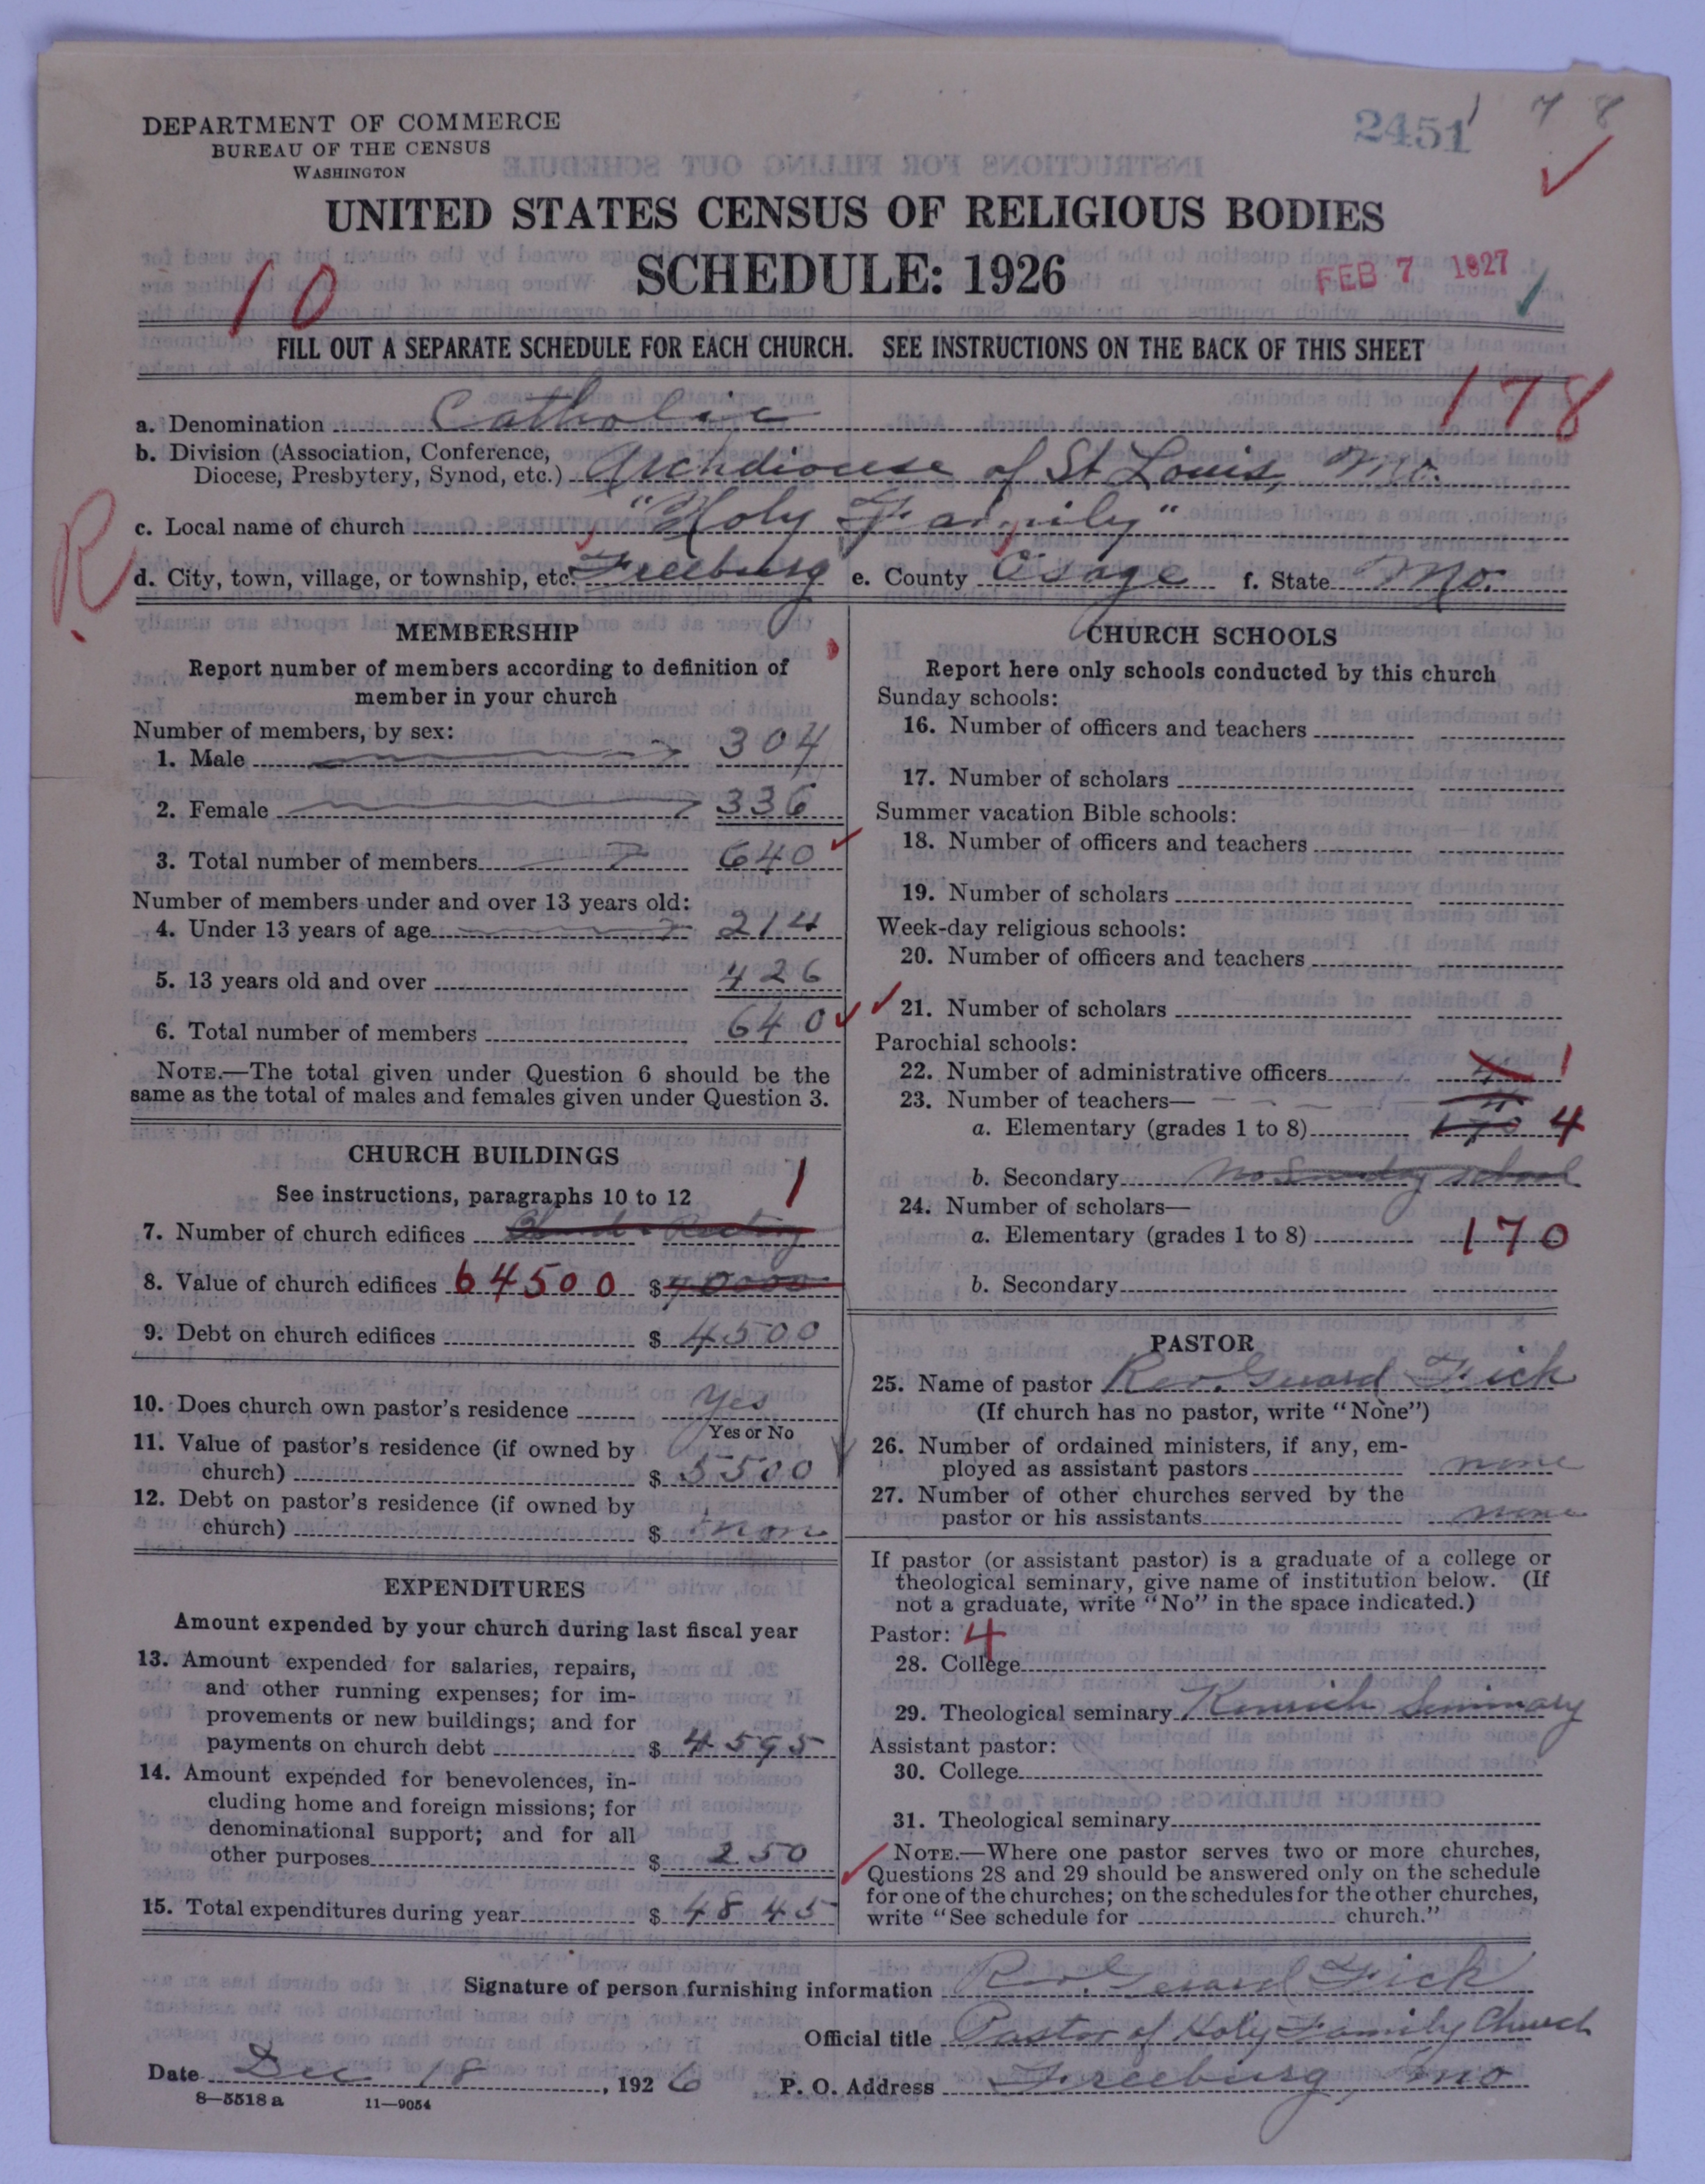 2451
1 7 8
DEPARTMENT OF COMMERCE
BUREAU OF THE CENSUS
WASHINGTON
UNITED STATES CENSUS OF RELIGIOUS BODIES
SCHEDULE: 1926
FEB 7 1927
10
FILL OUT A SEPARATE SCHEDULE FOR EACH CHURCH. SEE INSTRUCTIONS ON THE BACK OF THIS SHEET
178
a. Denomination Catholic
b. Division (Association, Conference, Diocese, Presbytery, Synod, etc.) Archdiocese of St Louis, Mo.
c. Local name of church "Holy Family"
R
d. City, town, village, or township, etc. Freeburg e. County Osage f. State Mo.
MEMBERSHIP
Report number of members according to definition of
member in your church
Number of members, by sex:
1. Male 304
2. Female 336
3. Total number of members 640
Number of members under and over 13 years old:
4. Under 13 years of age 214
5. 13 years old and over 426
6. Total number of members 640
NOTE.—The total given under Question 6 should be the
same as the total of males and females given under Question 3.
CHURCH BUILDINGS
See instructions, paragraphs 10 to 12
7. Number of church edifices 1
8. Value of church edifices 64500 $40000
9. Debt on church edifices $ 4500
10. Does church own pastor's residence Yes
Yes or No
11. Value of pastor's residence (if owned by
church) $ 5500
12. Debt on pastor's residence (if owned by
church) $ non
EXPENDITURES
Amount expended by your church during last fiscal year
13. Amount expended for salaries, repairs,
and other running expenses; for im-
provements or new buildings; and for
payments on church debt $ 4595
14. Amount expended for benevolences, in-
cluding home and foreign missions; for
denominational support; and for all
other purposes $ 250
15. Total expenditures during year $ 4845
CHURCH SCHOOLS
Report here only schools conducted by this church
Sunday schools:
16. Number of officers and teachers
17. Number of scholars
Summer vacation Bible schools:
18. Number of officers and teachers
19. Number of scholars
Week-day religious schools:
20. Number of officers and teachers
21. Number of scholars
Parochial schools:
22. Number of administrative officers 1
23. Number of teachers—
a. Elementary (grades 1 to 8) 170 4
b. Secondary no Sunday school
24. Number of scholars—
a. Elementary (grades 1 to 8) 170
b. Secondary
PASTOR
25. Name of pastor Rev. Gerard Fick
(If church has no pastor, write "None")
26. Number of ordained ministers, if any, em-
ployed as assistant pastors none
27. Number of other churches served by the
pastor or his assistants none
If pastor (or assistant pastor) is a graduate of a college or
theological seminary, give name of institution below. (If
not a graduate, write "No" in the space indicated.)
Pastor: 4
28. College
29. Theological seminary Kenrick Seminary
Assistant pastor:
30. College
31. Theological seminary
NOTE.—Where one pastor serves two or more churches,
Questions 28 and 29 should be answered only on the schedule
for one of the churches; on the schedules for the other churches,
write "See schedule for church."
Signature of person furnishing information Rev. Gerard Fick
Official title Pastor of Holy Family Church
Date Dec 18, 1926 P. O. Address Freeburg, Mo
8—5518 a 11—9054